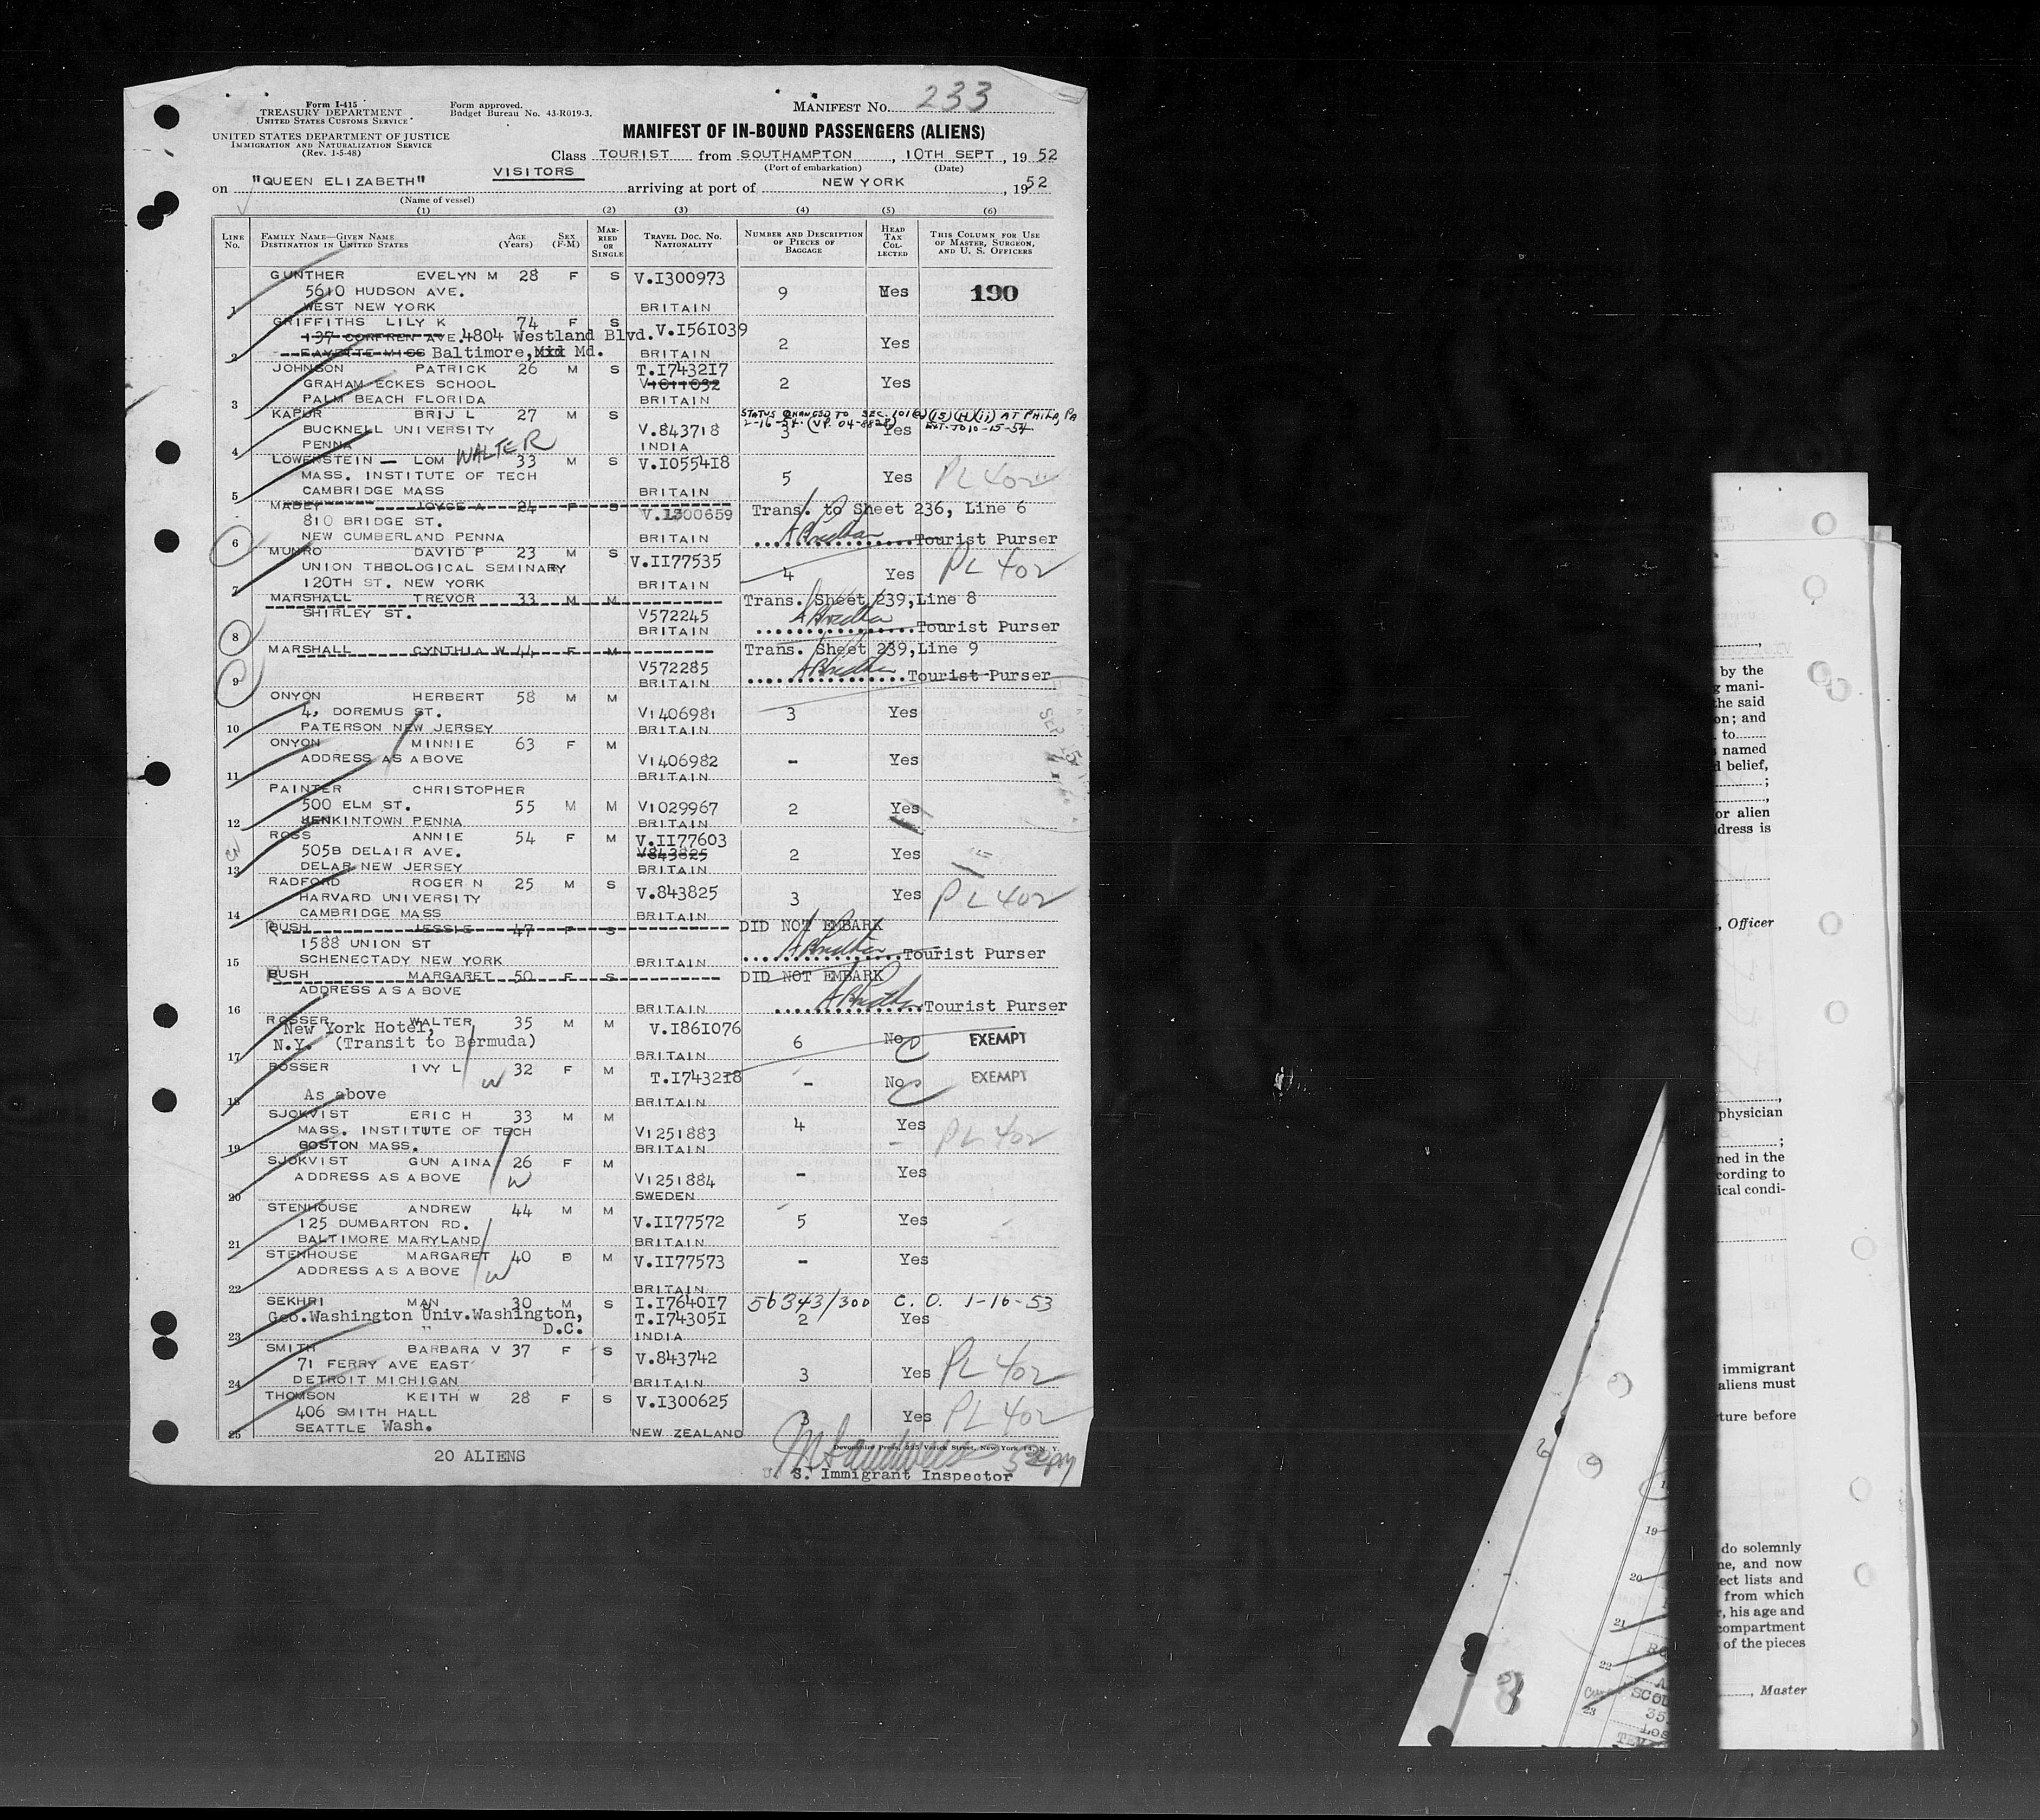 Form I-415
TREASURY DEPARTMENT
UNITED STATES CUSTOMS SERVICE
Form approved.
Budget Bureau No. 43-R019-3.
MANIFEST NO. 233
UNITED STATES DEPARTMENT OF JUSTICE
IMMIGRATION AND NATURALIZATION SERVICE
(Rev. 1-5-48)
MANIFEST OF IN-BOUND PASSENGERS (ALIENS)
Class TOURIST from SOUTHAMPTON, 10TH SEPT, 19 52
VISITORS (Port of embarkation) (Date)
on "QUEEN ELIZABETH" arriving at port of NEW YORK, 1952
(Name of vessel)
(1) (2) (3) (4) (5) (6)
LINE No. FAMILY NAME—GIVEN NAME DESTINATION IN UNITED STATES AGE (Years) SEX (F-M) MARRIED OR SINGLE TRAVEL DOC. NO. NATIONALITY NUMBER AND DESCRIPTION OF PIECES OF BAGGAGE HEAD TAX COLLECTED THIS COLUMN FOR USE OF MASTER, SURGEON, AND U. S. OFFICERS
GUNTHER EVELYN M 28 F S V.I300973
5610 HUDSON AVE. 9 Yes 190
1 WEST NEW YORK BRITAIN
GRIFFITHS LILY K 74 F S
137 AVE. 4804 Westland Blvd. V.I561039
2 Baltimore, Md. BRITAIN 2 Yes
JOHNSON PATRICK 26 M S T.I743217
GRAHAM-ECKES SCHOOL 2 Yes
3 PALM BEACH FLORIDA BRITAIN
KAPUR BRIJ L 27 M S STATUS CHANGED TO SEC. 101(a)(15)(H)(ii) AT PHILA, PA
2-16-54. EXT. TO 10-15-54
BUCKNELL UNIVERSITY V.843718 3 Yes
4 PENNA INDIA
LOWENSTEIN — LOM WALTER 33 M S V.I055418
MASS. INSTITUTE OF TECH 5 Yes PL 402
5 CAMBRIDGE MASS BRITAIN
MABEY JOYCE A 24 F S V.I300659 Trans. to Sheet 236, Line 6
810 BRIDGE ST.
6 NEW CUMBERLAND PENNA BRITAIN Tourist Purser
MUNRO DAVID P 23 M S V.II77535
UNION THEOLOGICAL SEMINARY 4 Yes PL 402
7 120TH ST. NEW YORK BRITAIN
MARSHALL TREVOR 33 M M Trans. Sheet 239, Line 8
SHIRLEY ST. V572245
8 BRITAIN Tourist Purser
MARSHALL CYNTHIA W 44 F M Trans. Sheet 239, Line 9
V572285
9 BRITAIN Tourist Purser
ONYON HERBERT 58 M M
4, DOREMUS ST. V1406981 3 Yes
10 PATERSON NEW JERSEY BRITAIN
ONYON MINNIE 63 F M
ADDRESS AS ABOVE V1406982 - Yes
11 BRITAIN
PAINTER CHRISTOPHER
500 ELM ST. 55 M M V1029967 2 Yes
12 JENKINTOWN PENNA BRITAIN
ROSS ANNIE 54 F M V.II77603
505B DELAIR AVE. V843825 2 Yes
13 DELAR NEW JERSEY BRITAIN
RADFORD ROGER N 25 M S V.843825
HARVARD UNIVERSITY 3 Yes PL 402
14 CAMBRIDGE MASS BRITAIN
RUSH JESSIE 47 F S DID NOT EMBARK
1588 UNION ST
15 SCHENECTADY NEW YORK BRITAIN Tourist Purser
RUSH MARGARET 50 F S DID NOT EMBARK
ADDRESS AS ABOVE
16 BRITAIN Tourist Purser
ROSSER WALTER 35 M M V.I861076
New York Hotel,
17 N.Y. (Transit to Bermuda) BRITAIN 6 No EXEMPT
ROSSER IVY L 32 F M T.I743218 - No EXEMPT
18 As above BRITAIN
SJOKVIST ERIC H 33 M M
MASS. INSTITUTE OF TECH V1251883 4 Yes PL 402
19 BOSTON MASS. BRITAIN
SJOKVIST GUN AINA 26 F M
ADDRESS AS ABOVE V1251884 - Yes
20 SWEDEN
STENHOUSE ANDREW 44 M M
125 DUMBARTON RD. V.II77572 5 Yes
21 BALTIMORE MARYLAND BRITAIN
STENHOUSE MARGARET 40 M V.II77573 - Yes
ADDRESS AS ABOVE
22 BRITAIN
SEKHRI MAN 30 M S I.I764017 56343/300 C. O. 1-16-53
Geo.Washington Univ.Washington, T.I74305I 2 Yes
23 " D.C. INDIA
SMITH BARBARA V 37 F S V.843742
71 FERRY AVE EAST 3 Yes PL 402
24 DETROIT MICHIGAN BRITAIN
THOMSON KEITH W 28 F S V.I300625
406 SMITH HALL 3 Yes PL 402
25 SEATTLE Wash. NEW ZEALAND
Devonshire Press, 225 Varick Street, New York 14, N. Y.
20 ALIENS
U. S. Immigrant Inspector
by the
mani-
the said
on; and
to
named
belief,
;
or alien
dress is
, Officer
physician
;
ned in the
cording to
ical condi-
immigrant
aliens must
ture before
do solemnly
ne, and now
ect lists and
from which
, his age and
compartment
of the pieces
, Master
19
20
21
22
23
8